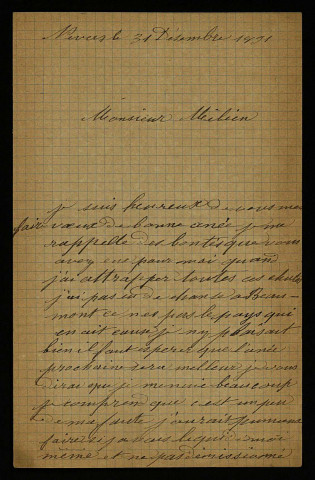 Nevers le 31 Désembre 1891
Monsieur Milien
je suis heureux de vous
faire vœux de bonne anée je me
rappelle des bontés que vous
avez ene pour moi quand
j'ai attrapper toutes ces
j'ai pas eu de chance a Beau-
mont ce nes pas le pays qui
en ait cause je my plaisait
bien il faut esperer que l'anée
prochaine sera meilleur je vous
dirai que je mennuie beaucoup
je comprend que c'est un peu
de ma faute j'aurait pu
faire de moi
même et ne pas démissioné